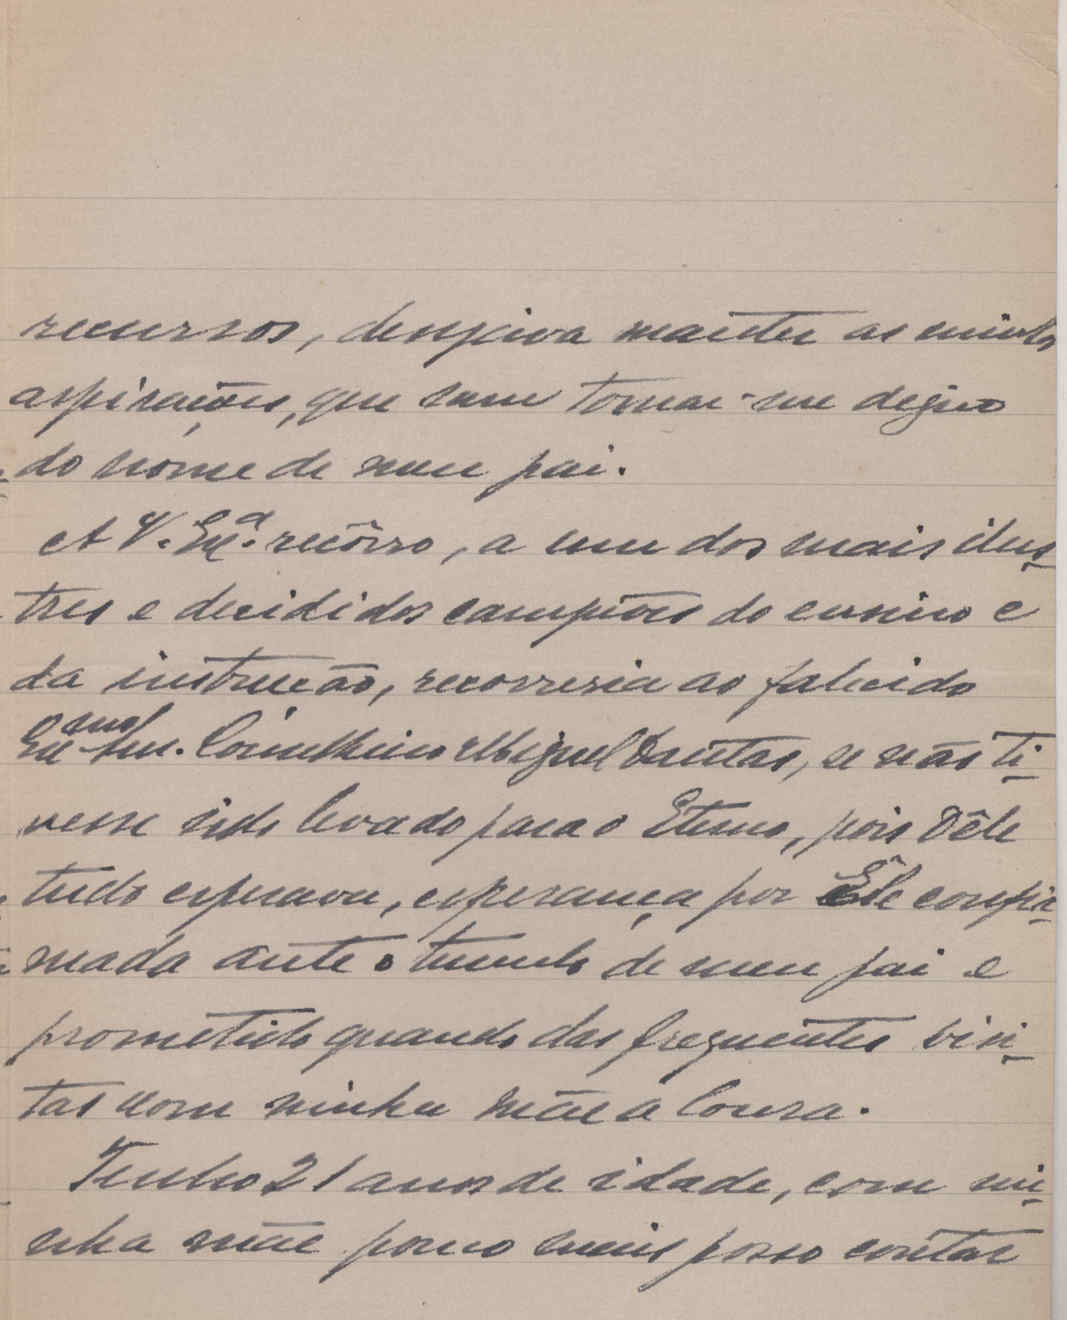 recursos, desejava manter as minhas
aspirações, que sam tornar-me digno
do nome de meu pai.
A V. Exª. recôrro, a um dos mais ilus-
tres e decididos campiões do ensino e
da instrucão, recorreria ao falecido
Exmo Snr. Miguel Dantas, se não ti-
vesse sido levado para o Eterno, pois Dêle
tudo esperava, esperança por Êle confir-
mada ante o tumulo de meu pai e
prometido quando das frequentes visi-
tas com minha mãe a Coura.
Tenho 21 anos de idade, com mi-
nha mãe pouco mais posso contar